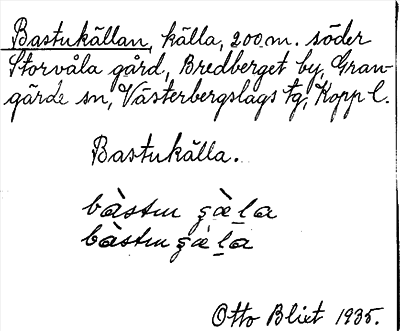 Bastukällan, källa, 200 m. söder
Storvåla gård, Bredberget by, Gran-
gärde sn, Västerbergslags tg, Kopp l.
Bastukälla.
Otto Blixt 1935.